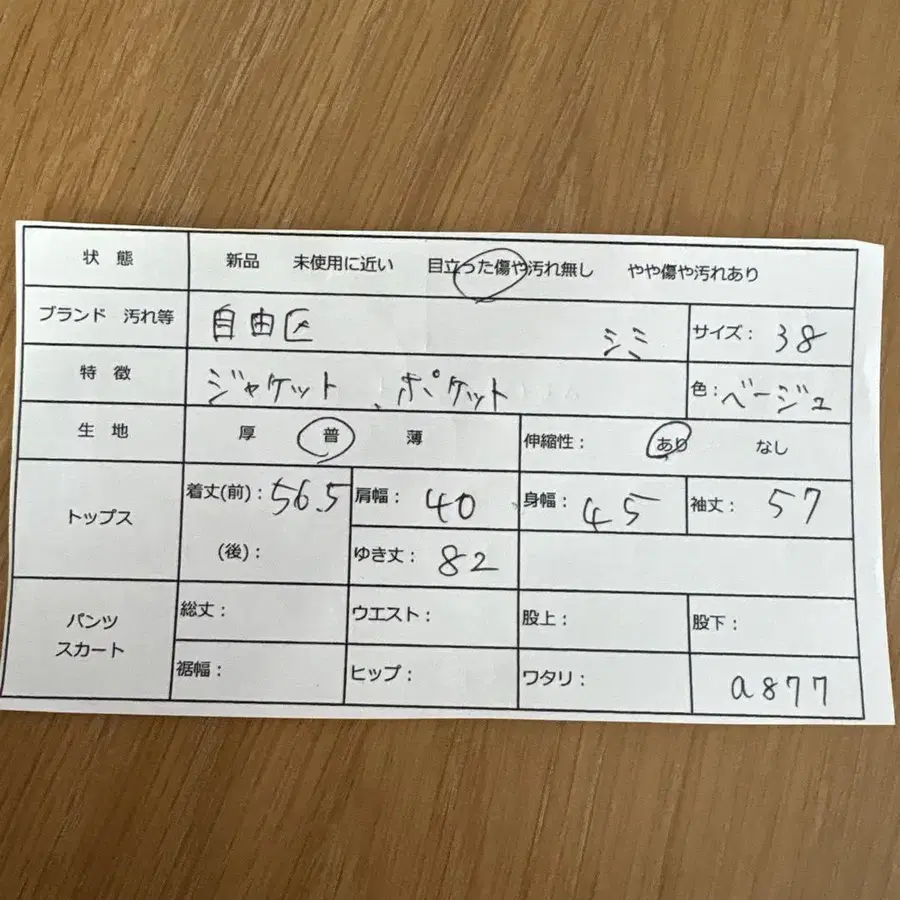 状 態 新品 未使用に近い 目立った傷や汚れ無し やや傷や汚れあり
ブランド 汚れ等 自由区 シミ サイズ: 38
特 徴 ジャケット、ポケット 色: ベージュ
生 地 厚 普 薄 伸縮性: あり なし
トップス 着丈(前): 56.5 肩幅: 40 身幅: 45 袖丈: 57
(後): ゆき丈: 82
パンツ スカート 総丈: ウエスト: 股上: 股下:
裾幅: ヒップ: ワタリ: a877